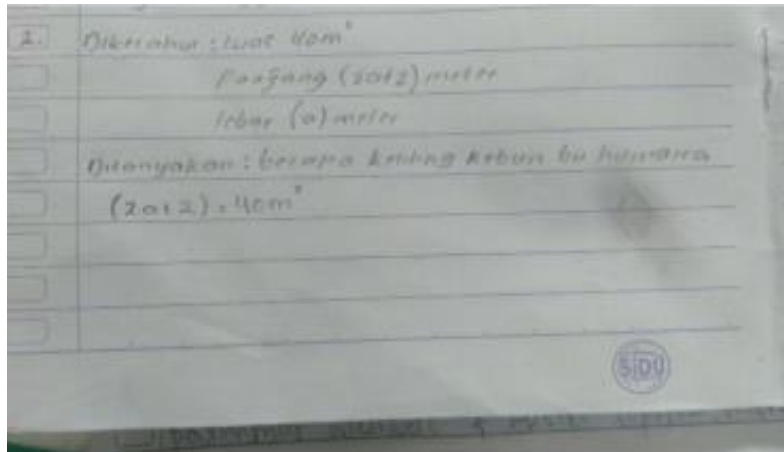 2. Diketahui : luas 40m²
Panjang (2a+2) meter
lebar (a) meter
Ditanyakan : berapa keliling kebun bu
(2a+2) = 40m²
SiDU